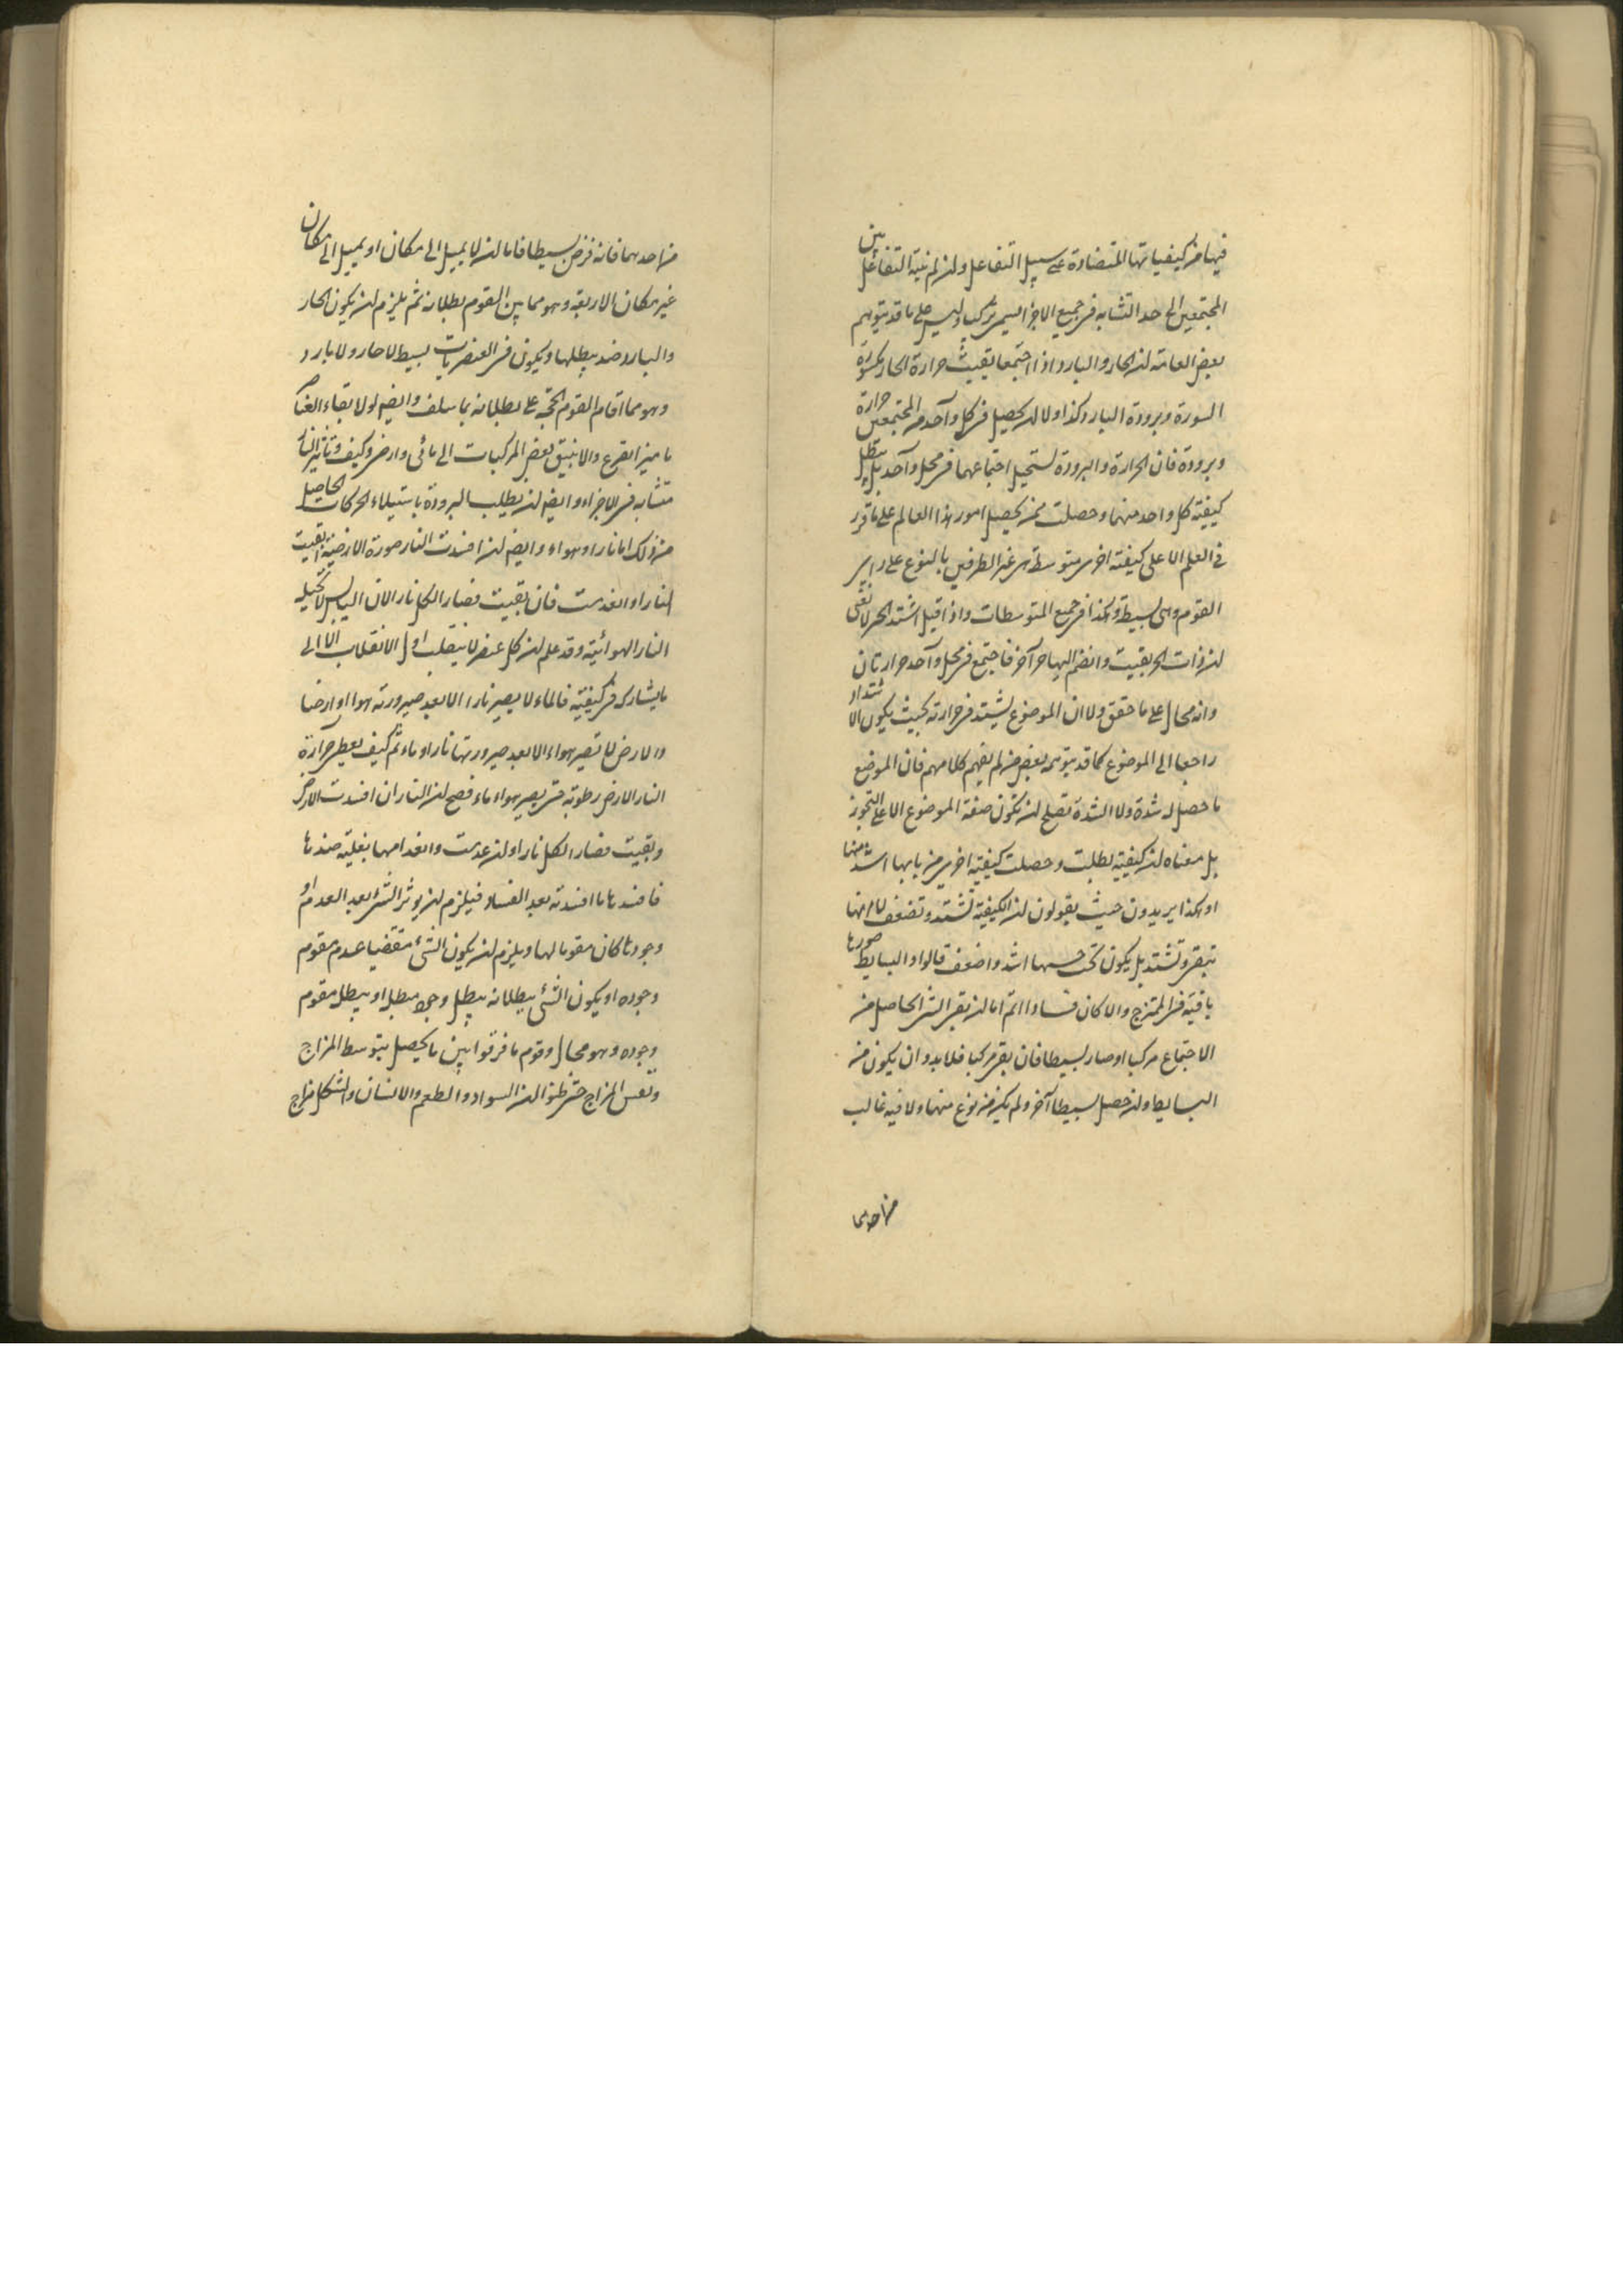 فيها من كيفياتها المتضادة على سبيل التفاعل وان لم ينته التفاعل بين
المجتمعين الى حد التشابه فى جميع الاجزا يسمى تركيبا وليس على ما قد يتوهم
بعض العامة ان الحار والبارد اذا اجتمعا بقيت حرارة الحار مكسورة
السورة وبرودة البارد كذا ولا ان يحصل فى كل واحد من المجتمعين حرارة
وبرودة فان الحرارة والبرودة يستحيل اجتماعهما فى محل واحد بل يبطل
كيفية كل واحد منهما وحصلت من يحصل امور هذا العالم على ما قرر
فى العلم الاعلى كيفية اخرى متوسطة هى غير الطرفين بالنوع على راى
القوم وهى بسيطة وهكذا فى جميع المتوسطات واذا قيل اشتد الحر لا نعنى
ان ذات الحر بقيت وانضم اليها حر آخر فاجتمع فى محل واحد حرارتان
وانه محال على ما حقق ولا ان الموضوع يشتد فى حرارته بحيث يكون الاشتداد
راجعا الى الموضوع كما قد يتوهمه بعض من لم يفهم كلامهم فان الموضع
ما حصل له شدة ولا الشدة تصلح ان تكون صفة الموضوع الا على التجوز
بل معناه ان كيفية بطلت وحصلت كيفية اخرى من بابها اشد منها
او هكذا يريدون حيث يقولون ان الكيفية تشتد وتضعف لا انها
تبقى وتشتد بل يكون تحت جنسها اشد واضعف قالوا والبسايط صورها
باقية فى الممتزج والا كان فسادا ثم اما ان بقى الشئ الحاصل من
الاجتماع مركبا او صار بسيطا فان بقى مركبا فلا بد وان يكون من
البسايط وان حصل بسيطا آخر ولم يكن من نوع منها ولا فيه غالب
من احدهما
من احدهما فانه فرض بسيطا فاما ان لا يميل الى مكان او يميل الى مكان
غير مكان الاربعة وهو مما بين القوم بطلانه ثم يلزم ان يكون الحار
والبارد ضد يبطلها ويكون فى العنصريات بسيط لا حار ولا بارد
وهو مما اقام القوم الحجة على بطلانه بما سلف وايضا لولا بقاء العناصر
ما ميز القرع والانبيق بعض المركبات الى مائى وارضى وكيف وتاثير النار
متشابه فى الاجزاء وايضا ان يطلب البرودة باستيلاء الحركات الحاصل
من ذلك اما نار او هواء وايضا ان افسدت النار صورة الارضية ابقيت
النار او انعدمت فان بقيت فصار الكل نارا لان اليابس لا تحيله
النار الهوائية وقد علم ان كل عنصر لا ينقلب اول الانقلاب الا الى
ما يشارك فى كيفية فالماء لا يصير نارا الا بعد صيرورته هوا او ارضا
والارض لا تصير هواء الا بعد صيرورتها نارا وماء ثم كيف يعطى حرارة
النار الارض رطوبة حتى يصير هواء ماء فصح ان النار ان افسدت الارض
وبقيت فصار الكل نارا وان عدمت وانعدامها بغلبة ضدها
فافسدها ما افسدته بعد الفساد فيلزم ان يوثر الشئ بعد العدم او
وجودها كان مقوما لها ويلزم ان يكون الشئ مقتضيا عدم مقوم
وجوده او يكون الشئ ببطلانه يبطل وجود مبطله او يبطل مقوم
وجوده وهو محال وقوم ما فرقوا بين ما يحصل بتوسط المزاج
ونفس المزاج حتى ظنوا ان السواد والطعم والانسان والشكل مزاج